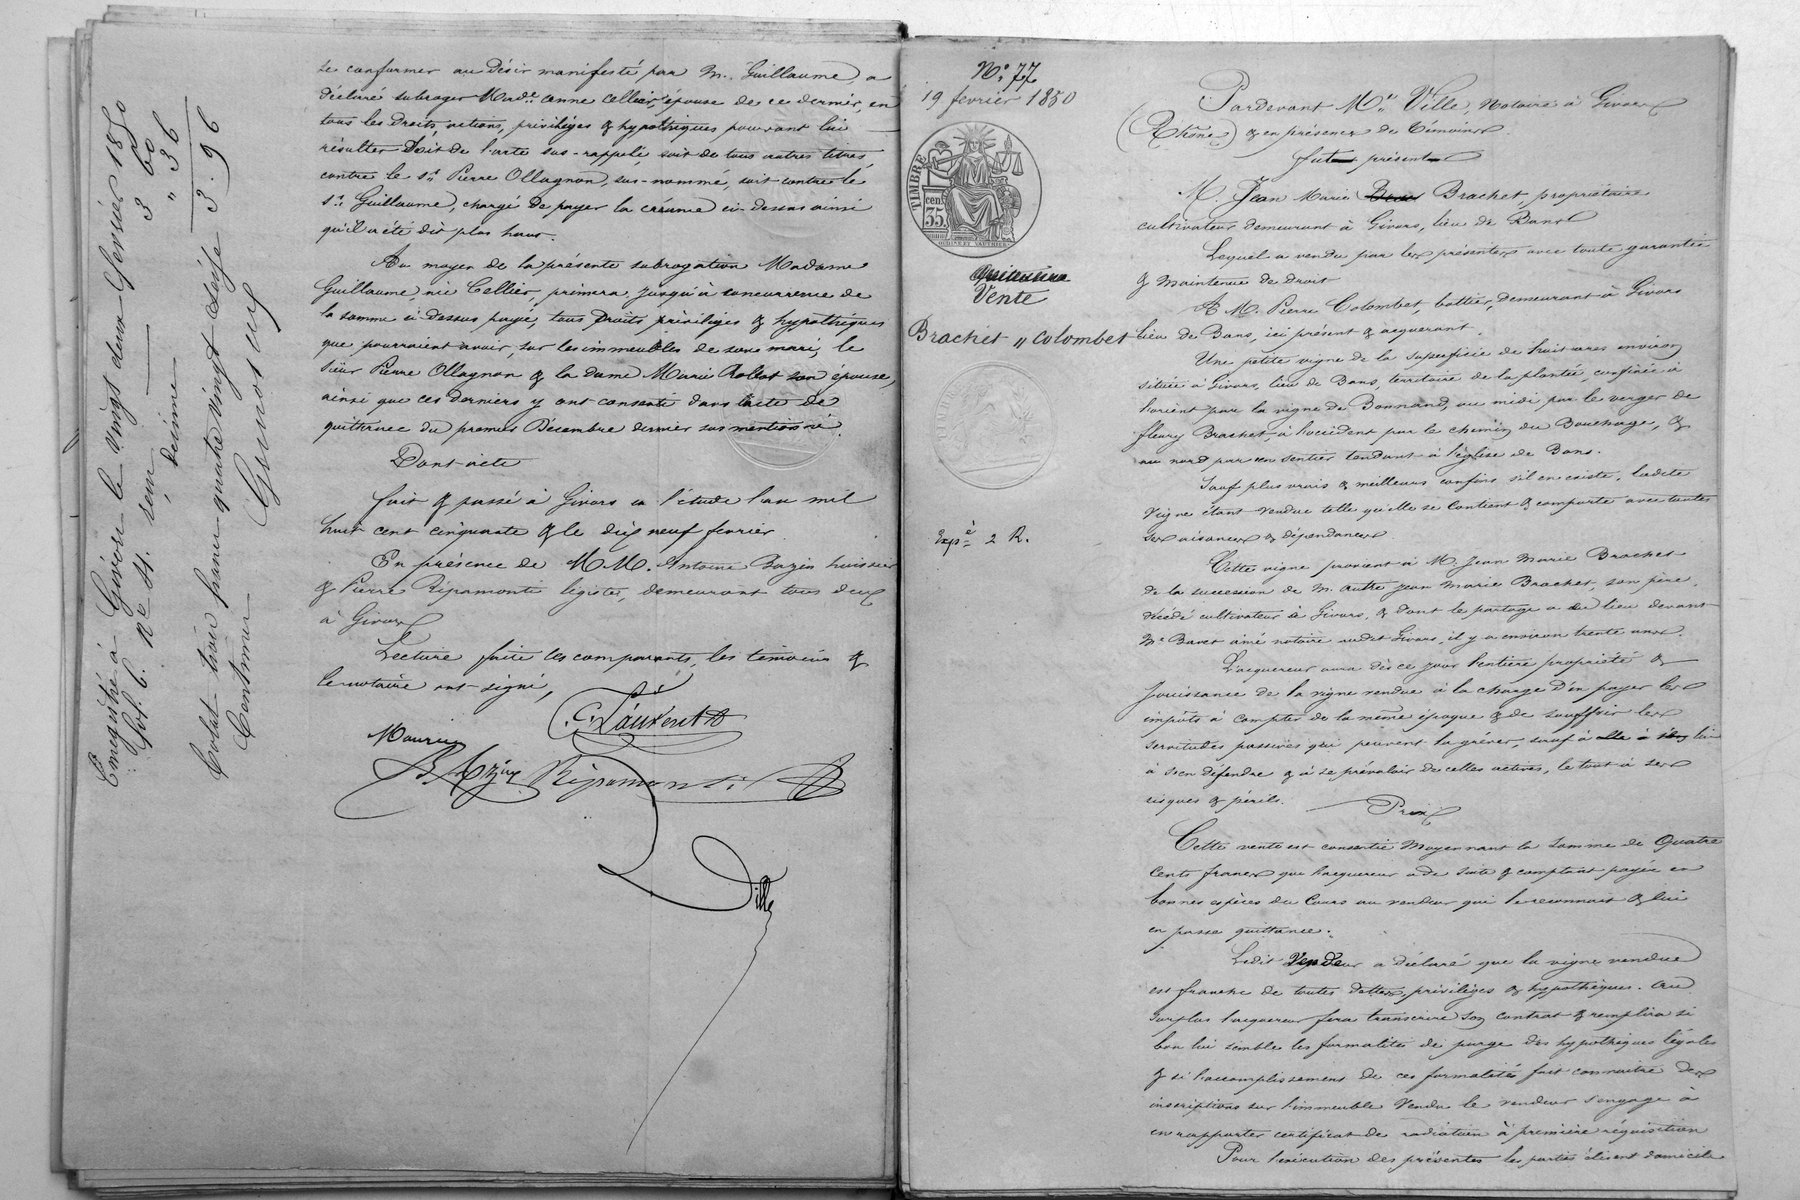 se conformer au désir manifesté par M. Guillaume, a
déclaré subroger Made. anne Cellier, épouse de ce dernier, en
tous les Droits, actions, privilèges & hypothèques pouvant lui
résulter soit de l'acte sus-rappelé, soit de tous autres titres,
contre le sr. Pierre Ollagnon, sus-nommé, soit contre le
sr. Guillaume, chargé de payer la créance ci-dessus ainsi
qu'il a été dit plus haut.
Au moyen de la présente subrogation Madame
Guillaume, née Cellier, primera, jusqu'à concurrence de
la somme ci-dessus payé, tous Droits privilèges & hypothèques
que pourraient avoir, sur les immeubles de son mari, le
sieur Pierre Ollagnon & la dame Marie son épouse,
ainsi que ces derniers y ont consenti dans l'acte de
quittance du premier Décembre dernier sus mentionné.
Dont acte
fait & passé à Givors en l'étude l'an mil
huit cent cinquante & le dix neuf février
En présence de MM. Antoine Bazin huissier
& Pierre Ripamonti légiste, demeurant tous deux
à Givors
Lecture faite les comparants, les témoins &
le notaire ont signé,
C. Laurent
Maurin
Bazin Ripamonti
Ville
Enregistré à Givors le Vingt deux Février 1850
fol. 6. Re. C4. 3 60
décime " 36
3. 96
trois francs quatre vingt seize
Centimes
No. 77
19 février 1850
TIMBRE
35 cen.
Quittance
Vente
Brachet // Colombet
Expée 2 R.
Pardevant Me. Ville, Notaire à Givors
(Rhône) & en présence de témoins
fut présent
M. Jean Marie Brachet, propriétaire
cultivateur demeurant à Givors, lieu de Bans
Lequel a vendu par les présentes avec toute garantie
& maintenue de droit
A M. Pierre Colombet, bottier, demeurant à Givors
lieu de Bans, ici présent & acquérant.
Une petite vigne de la superficie de huit ares environ
située à Givors, lieu de Bans, territoire de la plantée, confinée à
l'orient par la vigne de Bonnand, au midi, par le verger de
fleury Brachet, à l'occident par le chemin du Bouchage, &
au nord par un sentier tendant à l'église de Bans.
Sauf plus vrais & meilleurs confins s'il en existe, ladite
vigne étant vendue telle qu'elle se contient & comporte avec toutes
ses aisances & dépendances
Cette vigne provient à M. Jean Marie Brachet
de la succession de M. autre Jean Marie Brachet, son père,
décédé cultivateur à Givors, & dont le partage a eu lieu devant
Me. ainé notaire audit Givors, il y a environ trente ans.
L'acquéreur aura dès ce jour l'entière propriété &
jouissance de la vigne vendue à la charge d'en payer les
impôts à compter de la même époque & de souffrir les
servitudes passives qui peuvent la gréver, sauf à lui
à s'en défendre & à se prévaloir de celles actives, le tout à ses
risques & périls.
Prix
Cette vente est consentie moyennant la somme de Quatre
Cents francs que l'acquéreur a de suite & comptant payée en
bonnes espèces du Cours au vendeur qui le reconnait & lui
en passe quittance.
Ledit Vendeur a déclaré que la vigne vendue
est franche de toutes dettes, privilèges & hypothèques. Au
surplus l'acquéreur fera transcrire son contrat & remplira si
bon lui semble les formalités de purge des hypothèques légales
& si l'accomplissement de ces formalités fait connaitre des
inscriptions sur l'immeuble Vendu le vendeur s'engage à
en rapporter certificat de radiation à première réquisition
Pour l'exécution des présentes les parties élisent domicile